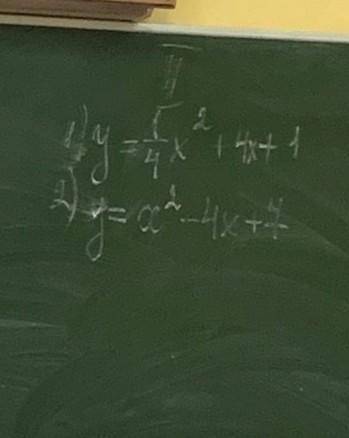 1) y = 1/4 x² + 4x + 1
2) y = x² - 4x + 7